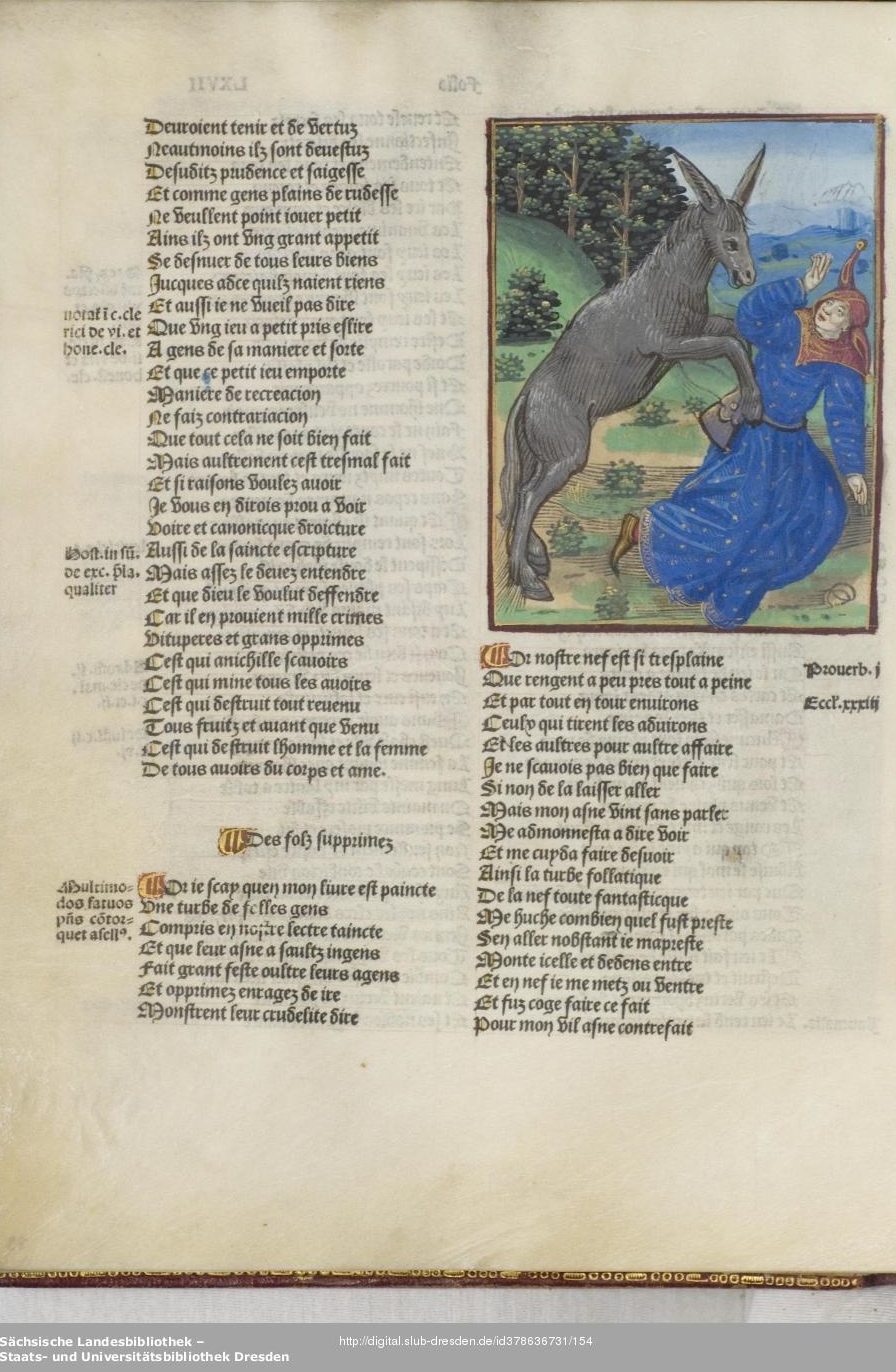 Deuroient tenir et de vertuz
Neautmoins ilz sont deuestuz
Desuditz prudence et saigesse
Et comme gens plains de rudesse
Ne veullent point iouer petit
Ains ilz ont vng grant appetit
Se desnuer de tous leurs biens
Jucques adce quilz naient riens
Et aussi ie ne vueil pas dire
Que vng ieu a petit pris eslire
A gens de sa maniere et sorte
Et que ce petit ieu emporte
Maniere de recreacion
Ne faiz contrariacion
Que tout cela ne soit bien fait
Mais aultrement cest tresmal fait
Et si raisons voulez auoir
Je vous en dirois prou a voir
Voire et canonicque droicture
Aussi de la saincte escripture
Mais assez le deuez entendre
Et que dieu le voulut deffendre
Car il en prouient mille crimes
Vituperes et grans opprimes
Cest qui anichille scauoirs
Cest qui mine tous les auoirs
Cest qui destruit tout reuenu
Tous fruitz et auant que venu
Cest qui destruit lhomme et la femme
De tous auoirs du corps et ame.
notat ī c. cle
rici de vi. et
hone. cle.
Host. in sū.
de exc. p̄la.
qualiter
Des folz supprimez
Or ie scay quen mon liure est paincte
Vne turbe de folles gens
Compris en nostre lectre taincte
Et que leur asne a saultz ingens
Fait grant feste oultre leurs agens
Et opprimez enragez de ire
Monstrent leur crudelite dire
Multimo-
dos fatuos
pn̄s cōtor-
quet asellꝰ.
Or nostre nef est si tresplaine
Que rengent a peu pres tout a peine
Et par tout en tour enuirons
Ceulx qui tirent les aduirons
Et les aultres pour aultre affaire
Je ne scauois pas bien que faire
Si non de la laisser aller
Mais mon asne vint sans parler
Me admonnesta a dire voir
Et me cuyda faire desuoir
Ainsi la turbe follatique
De la nef toute fantasticque
Me huche combien quel fust preste
Sen aller nobstant ie mapreste
Monte icelle et dedens entre
Et en nef ie me metz ou ventre
Et fuz coge faire ce fait
Pour mon vil asne contrefait
Prouerb. j
Eccl'. xxxiij
Sächsische Landesbibliothek –
Staats- und Universitätsbibliothek Dresden
http://digital.slub-dresden.de/id378636731/154